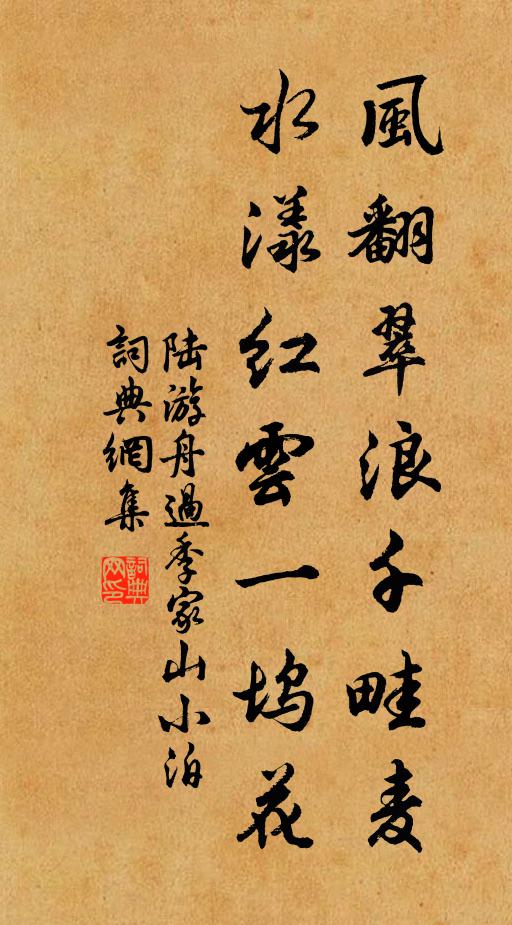 風翻翠浪千畦麦
水漾红雲一坞花
陆游舟過季家山小泊
詞典網集
詞典网印